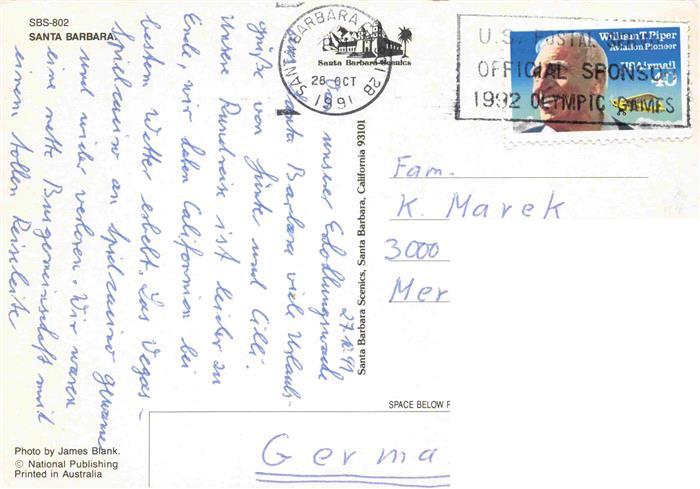 SBS-802
SANTA BARBARA
Santa Barbara Scenics
SANTA BARBARA CA 931 2B
28 OCT
1991
U.S. POSTAL
OFFICIAL SPONSO
1992 OLYMPIC GAMES
William T. Piper
Aviation Pioneer
US Airmail
40
27.10.91
unserer Erholungswoche
Santa Barbara viele Urlaubs-
grüße von Günter und Cilli.
Unsere Rundreise ist leider zu
Ende, wir haben Californien bei
bestem Wetter erlebt. Las Vegas –
Spielcasino an Spielcasino gewonnen
und wieder verloren. Wir waren
eine nette Busgemeinschaft mit
einem tollen Reiseleiter
Santa Barbara Scenics, Santa Barbara, California 93101
Fam.
K. Marek
3000
Mer
SPACE BELOW
Germa
Photo by James Blank.
© National Publishing
Printed in Australia